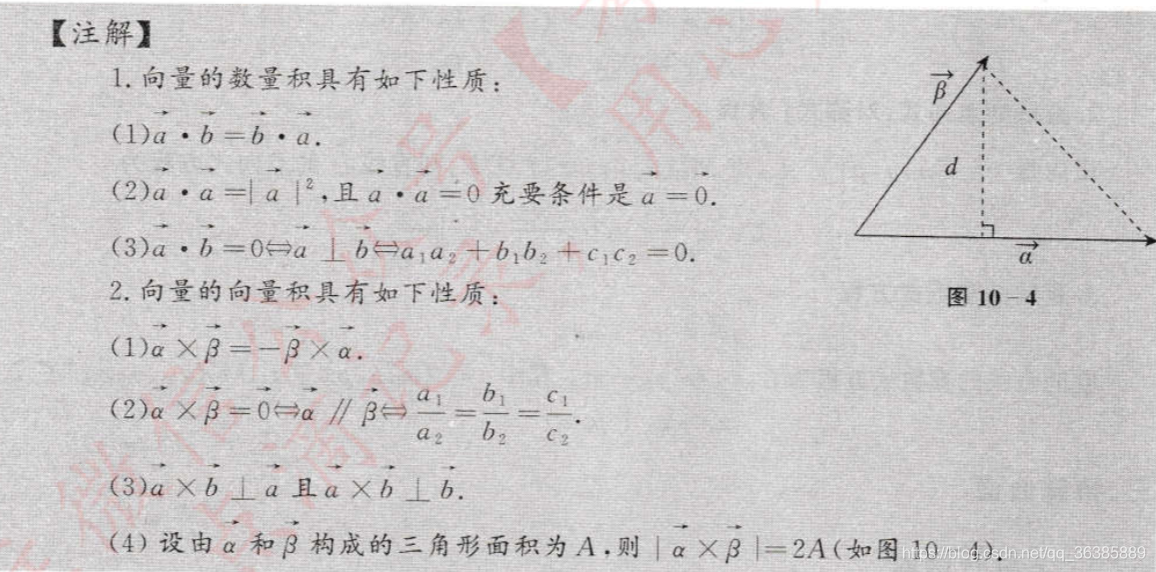 【注解】
1.向量的数量积具有如下性质:
(1)$\vec{a}\cdot\vec{b}=\vec{b}\cdot\vec{a}$.
(2)$\vec{a}\cdot\vec{a}=|\vec{a}|^2$,且$\vec{a}\cdot\vec{a}=0$充要条件是$\vec{a}=\vec{0}$.
(3)$\vec{a}\cdot\vec{b}=0\Leftrightarrow\vec{a}\perp\vec{b}\Leftrightarrow a_1a_2+b_1b_2+c_1c_2=0$.
2.向量的向量积具有如下性质:
(1)$\vec{\alpha}\times\vec{\beta}=-\vec{\beta}\times\vec{\alpha}$.
(2)$\vec{\alpha}\times\vec{\beta}=\vec{0}\Leftrightarrow\vec{\alpha}∥\vec{\beta}\Leftrightarrow\frac{a_1}{a_2}=\frac{b_1}{b_2}=\frac{c_1}{c_2}$.
(3)$\vec{a}\times\vec{b}\perp\vec{a}$且$\vec{a}\times\vec{b}\perp\vec{b}$.
(4)设由$\vec{\alpha}$和$\vec{\beta}$构成的三角形面积为A,则$|\vec{\alpha}\times\vec{\beta}|=2A$(如图10-4).
$\vec{\beta}$
d
$\vec{\alpha}$
图 10-4
https://blog.csdn.net/qq_36385889